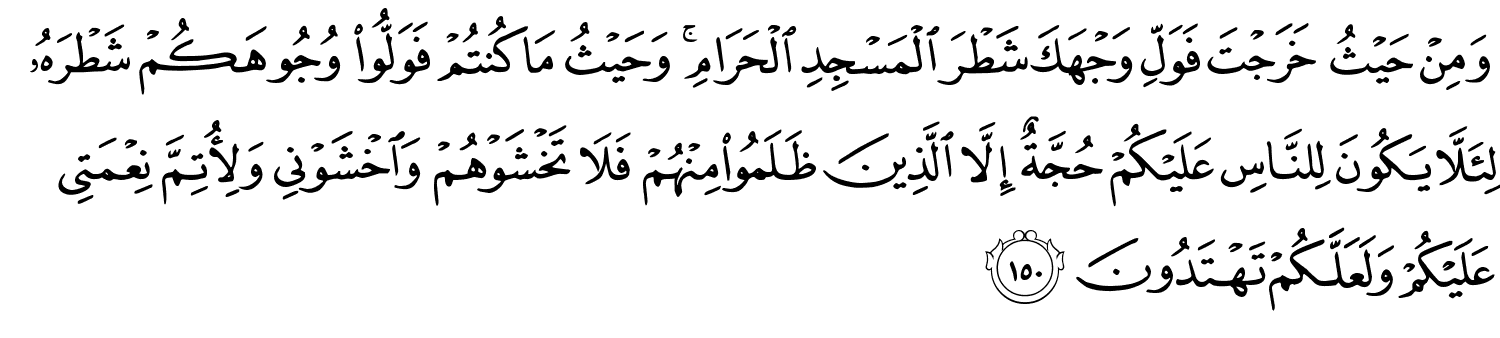 وَمِنْ حَيْثُ خَرَجْتَ فَوَلِّ وَجْهَكَ شَطْرَ ٱلْمَسْجِدِ ٱلْحَرَامِ ۚ وَحَيْثُ مَا كُنتُمْ فَوَلُّوا۟ وُجُوهَكُمْ شَطْرَهُۥ
لِئَلَّا يَكُونَ لِلنَّاسِ عَلَيْكُمْ حُجَّةٌ إِلَّا ٱلَّذِينَ ظَلَمُوا۟ مِنْهُمْ فَلَا تَخْشَوْهُمْ وَٱخْشَوْنِى وَلِأُتِمَّ نِعْمَتِى
عَلَيْكُمْ وَلَعَلَّكُمْ تَهْتَدُونَ ١٥٠